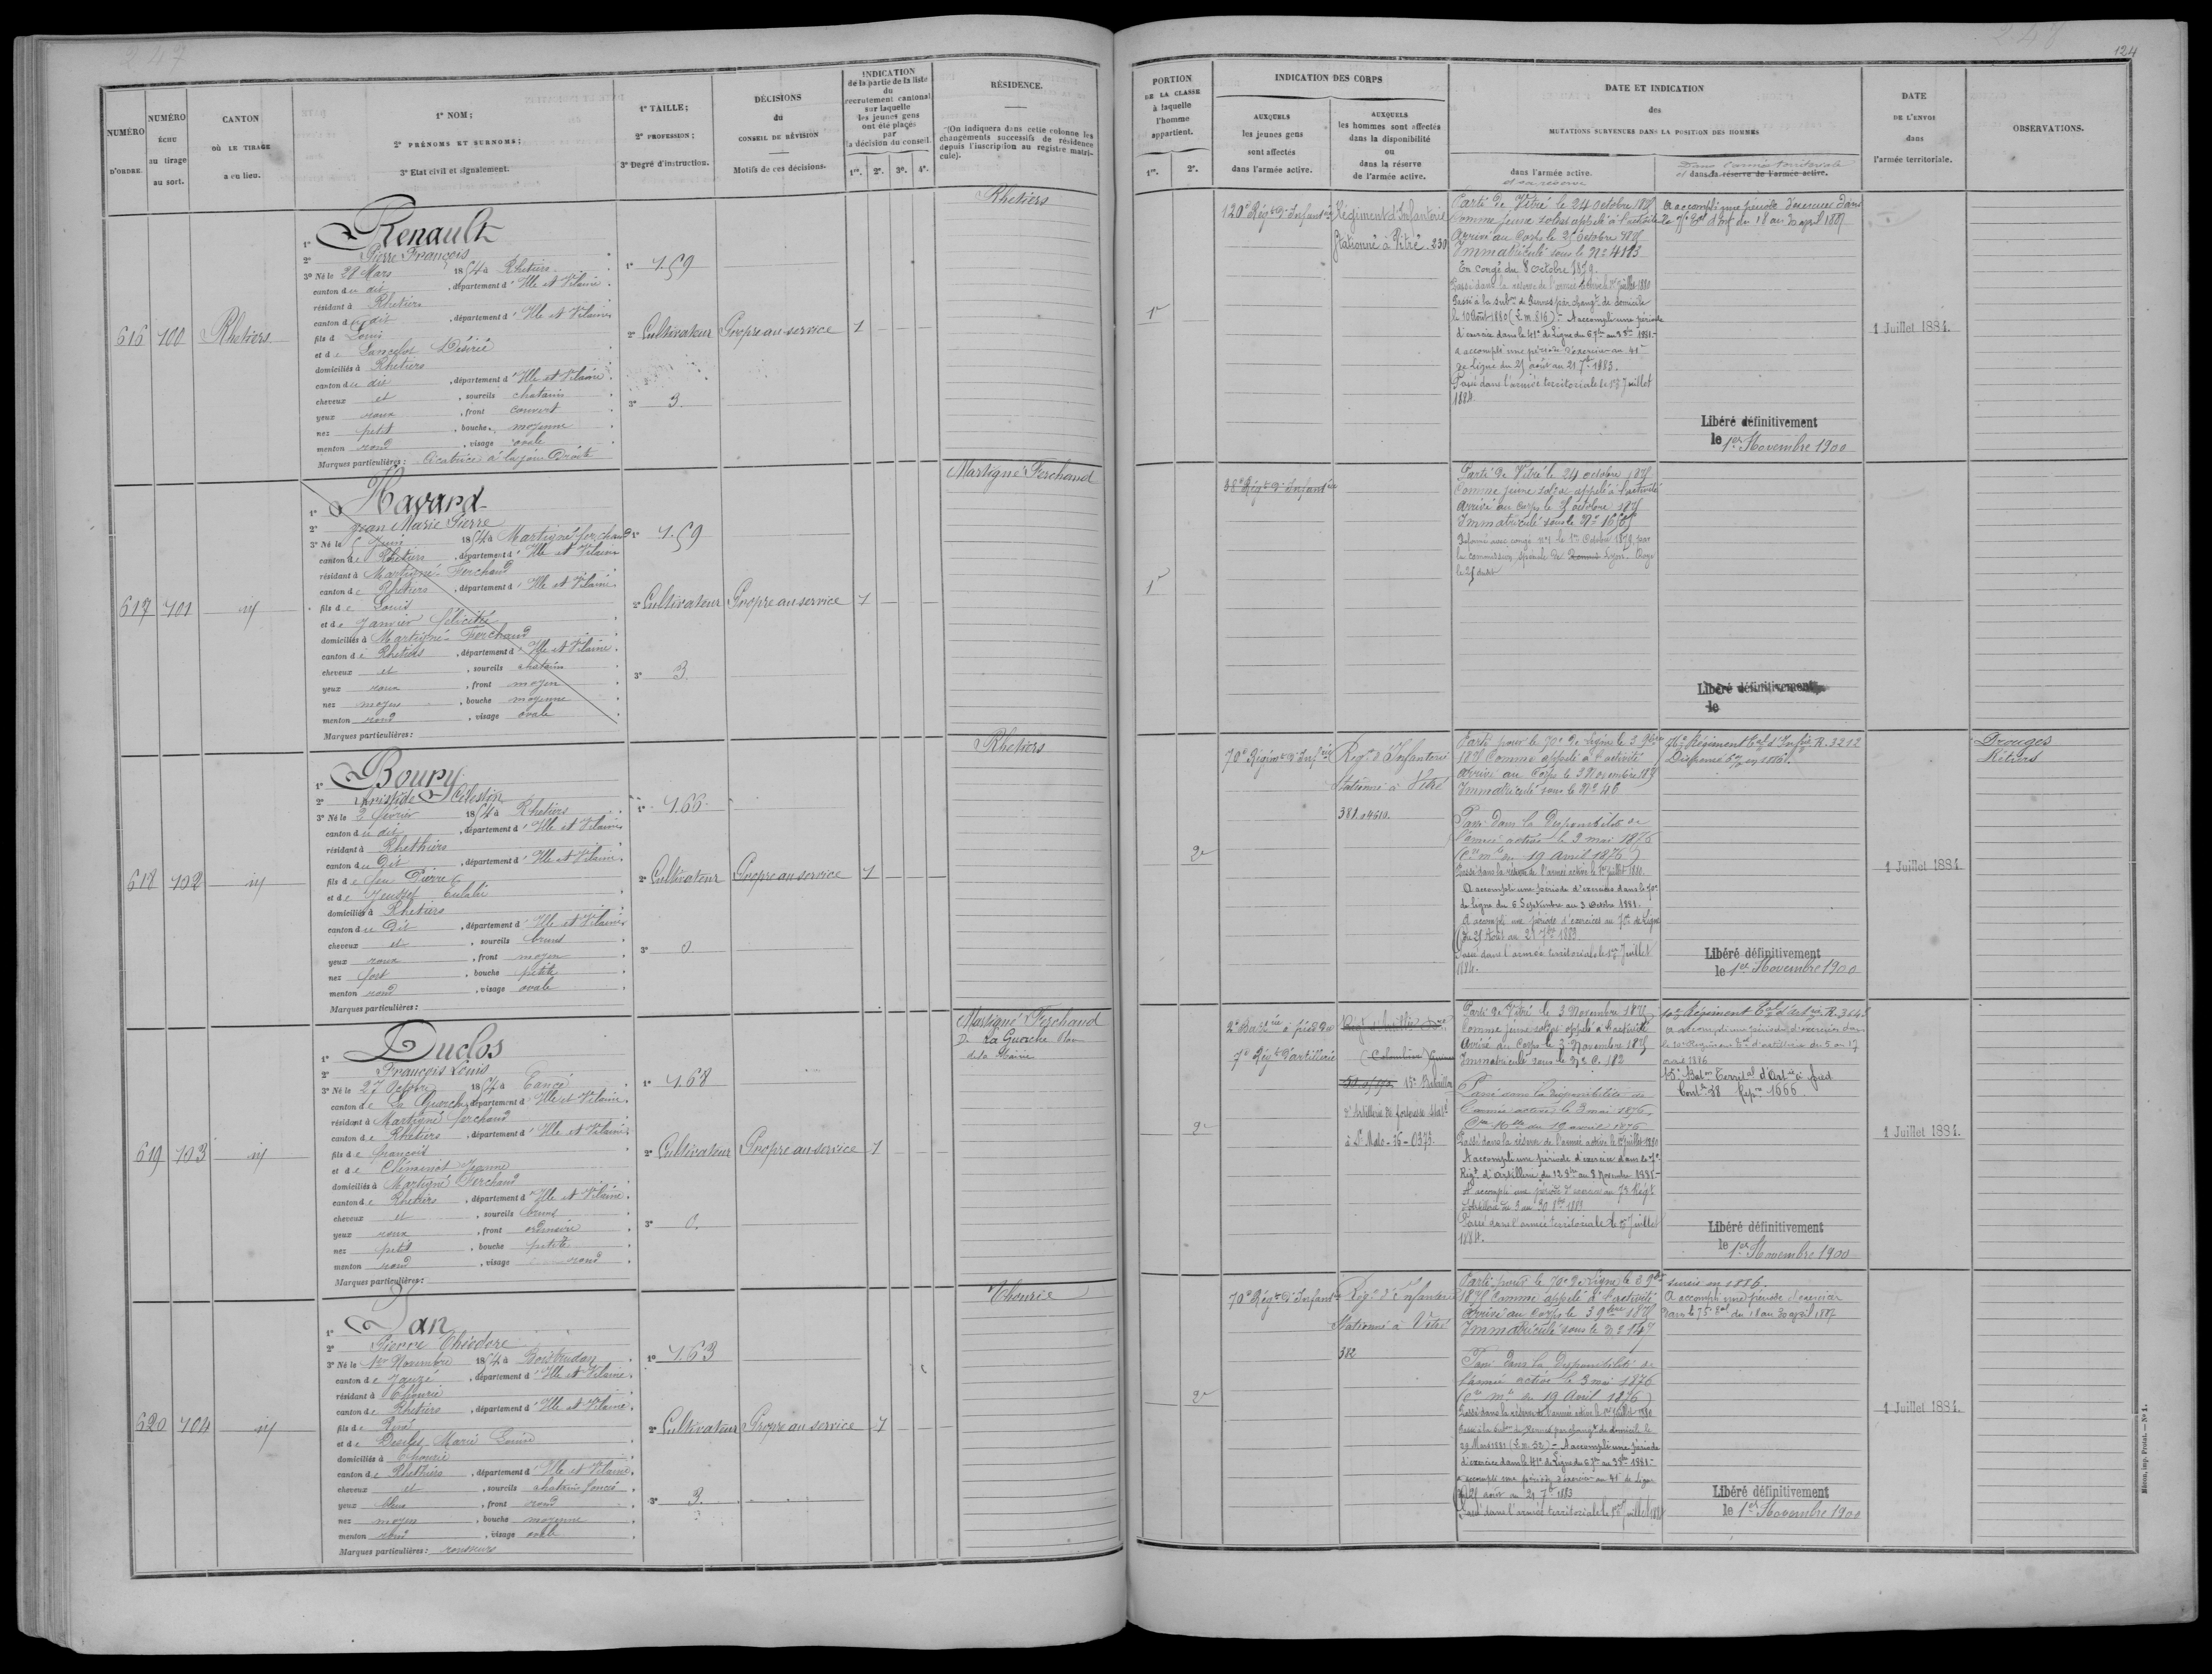 247
NUMÉRO D'ORDRE
NUMÉRO ÉCHU au tirage au sort.
CANTON OÙ LE TIRAGE a eu lieu.
1° NOM;
2° PRÉNOMS ET SURNOMS;
3° Etat civil et signalement.
1° TAILLE;
2° PROFESSION;
3° Degré d'instruction.
DÉCISIONS
du
CONSEIL DE RÉVISION
Motifs de ces décisions.
INDICATION
de la partie de la liste
du
recrutement cantonal
sur laquelle
les jeunes gens
ont été placés
par
la décision du conseil.
1re. 2e. 3e. 4e.
RÉSIDENCE.
(On indiquera dans cette colonne les
changements successifs de résidence
depuis l'inscription au registre matri-
cule).
616 100 Rhetiers
1° Renault
2° Pierre François
3° Né le 28 Mars 1854 à Rhetiers
canton du dit, département d'Ille et Vilaine
résidant à Rhetiers
canton du dit, département d'Ille et Vilaine
fils d Louis
et de Lancelot Désirée
domiciliés à Rhetiers
canton du dit, département d'Ille et Vilaine
cheveux et, sourcils chatain
yeux roux, front couvert
nez petit, bouche moyenne
menton rond, visage ovale
Marques particulières: Cicatrice à la joue Droite
1° 1.59
2° Cultivateur
3° 3.
Propre au service
1
Rhetiers
617 101 id
1° Havard
2° Jean Marie Pierre
3° Né le 5 Juin 1854 à Martigné ferchaud
canton de Rhetiers, département d'Ille et Vilaine
résidant à Martigné-Ferchaud
canton de Rhetiers, département d'Ille et Vilaine
fils de Louis
et de Janvier félicité
domiciliés à Martigné-Ferchaud
canton de Rhetiers, département d'Ille et Vilaine
cheveux et, sourcils chatain
yeux roux, front moyen
nez moyen, bouche moyenne
menton rond, visage ovale
Marques particulières:
1° 1.59
2° Cultivateur
3° 3.
Propre au service
1
Martigné Ferchaud
618 102 id
1° Boury
2° Aristide Célestin
3° Né le 3 février 1854 à Rhetiers
canton du dit, département d'Ille et Vilaine
résidant à Rhethiers
canton du Dit, département d'Ille et Vilaine
fils de feu Pierre
et de Eulalie
domiciliés à Rhetiers
canton du Dit, département d'Ille et Vilaine
cheveux et, sourcils bruns
yeux roux, front moyen
nez fort, bouche petite
menton rond, visage ovale
Marques particulières:
1° 1.66
2° Cultivateur
3° 0
Propre au service
1
Rhetiers
619 103 id
1° Duclos
2° François Louis
3° Né le 27 Octobre 1854 à Rancé
canton de La Guerche, département d'Ille et Vilaine
résidant à Martigné ferchaud
canton de Rhetiers, département d'Ille et Vilaine
fils de françois
et de Cheminot Jeanne
domiciliés à Martigné Ferchaud
canton de Rhetiers, département d'Ille et Vilaine
cheveux et, sourcils bruns
yeux roux, front ordinaire
nez petit, bouche petite
menton rond, visage rond
Marques particulières:
1° 1.68
2° Cultivateur
3° 0.
Propre au service
1
Martigné Ferchaud
D. La Guerche
de la Mairie
620 104 id
1° Jan
2° Pierre Théodore
3° Né le 1er Novembre 1854 à Boistrudan
canton de Janzé, département d'Ille et Vilaine
résidant à Thourie
canton de Rhetiers, département d'Ille et Vilaine
fils de René
et de Marie Louise
domiciliés à Thourie
canton de Rhethiers, département d'Ille et Vilaine
cheveux et, sourcils chatain foncé
yeux bleus, front rond
nez moyen, bouche moyenne
menton rond, visage ovale
Marques particulières: rousseurs
1° 1.63
2° Cultivateur
3° 3.
Propre au service
1
Thourie
248
124
PORTION
DE LA CLASSE
à laquelle
l'homme
appartient.
1re. 2e.
INDICATION DES CORPS
AUXQUELS
les jeunes gens
sont affectés
dans l'armée active.
AUXQUELS
les hommes sont affectés
dans la disponibilité
ou
dans la réserve
de l'armée active.
DATE ET INDICATION
des
MUTATIONS SURVENUES DANS LA POSITION DES HOMMES
dans l'armée active.
et sa réserve
Dans l'armée territoriale
et dans la réserve de l'armée active.
DATE
DE L'ENVOI
dans
l'armée territoriale.
OBSERVATIONS.
1re
120e Régt d'Infanterie
Régiment d'Infanterie
Stationné à Vitré 230
Parti de Vitré le 24 octobre 1875
Comme jeune soldat appelé à l'activité
Arrivé au Corps le 25 Octobre 1875
Immatriculé sous le N° 4183
En congé du 8 octobre 1879.
Passé dans la réserve de l'armée active le 1er Juillet 1880
Passé à la subon de Rennes par changt de domicile
le 10 Août 1880 (E.m. 816) - A accompli une période
d'exercice dans le 41e de Ligne du 6 7bre au 3 8bre 1881-
a accompli une période d'exercice au 41e
de Ligne du 25 août au 21 7bre 1883.
Passé dans l'armée territoriale le 1er Juillet
1884.
a accompli une période d'exercices dans
le 75e Rgt d'Inf du 18 au 30 april 1887
Libéré définitivement
le 1er Novembre 1900
1 Juillet 1884.
1re
38e Régt d'Infanterie
Parti de Vitré le 24 octobre 1875
Comme jeune soldat appelé à l'activité
arrivé au Corps le 25 octobre 1875
Immatriculé sous le N° 1658
Réformé avec congé n°1 le 1er Octobre 1879 par
la commission spéciale de Rennes Lyon.
le 25 dudit
Libéré définitivement
le
2e
70e Régimt d'Infrie
Régt d'Infanterie
Stationné à Vitré
381.04610.
Parti pour le 70e de Ligne le 3 9bre
1875 Comme appelé à l'activité
Arrivé au Corps le 3 Novembre 1875
Immatriculé sous le N° 46
Passé dans la Disponibilité de
l'armée active le 3 mai 1876
(Cre mlle du 19 Avril 1876)
Passé dans la réserve de l'armée active le 1er Juillet 1880.
A accompli une période d'exercices dans le 70e
de ligne du 6 Septembre au 3 Octobre 1881.
A accompli une période d'exercices au 70e de Ligne
du 25 Août au 21 7bre 1883
Passé dans l'armée territoriale le 1er Juillet
1884.
76e Régiment Tal d'Infie R. 3212
Dispensé en 1886.
Libéré définitivement
le 1er Novembre 1900
1 Juillet 1884
Drouges
Rétiers
2e
2e Battrie à pied du
7e Régt d'artillerie
15e Bataillon
d'Artillerie de forteresse Stat
à St Malo - 36 - 0373.
Parti de Vitré le 3 Novembre 1875
Comme jeune soldat appelé à l'activité
Arrivé au Corps le 3 Novembre 1875
Immatriculé sous le N° C. 182
Passé dans la disponibilité de
l'armée active le 3 mai 1876
Cre Mlle du 19 avril 1876
Passé dans la réserve de l'armée active le 1er Juillet 1880
A accompli une période d'exercice dans le 7e
Régt d'artillerie du 12 8bre au 8 Novembre 1881-
A accompli une période d'exercice au 7e Régt
d'Artillerie du 3 au 30 8bre 1883
Passé dans l'armée territoriale le 1er Juillet
1884.
10e Régiment Tal d'artie R. 3645
a accompli une période d'exercices dans
le 10e Régiment Tal d'artillerie du 5 au 17
avril 1886
15e Baton Territal d'Artie à pied
Contle 38 Reptre 1666
Libéré définitivement
le 1er Novembre 1900
1 Juillet 1884.
2e
70e Régt d'Infantie
Régt d'Infanterie
Stationné à Vitré
382
Parti pour le 70e de Ligne le 3 9bre
1875 Comme appelé à l'activité
Arrivé au Corps le 3 9bre 1875
Immatriculé sous le N° 147
Passé dans la Disponibilité de
l'armée active le 3 mai 1876
(Cre mlle du 19 Avril 1876)
Passé dans la réserve de l'armée active le 1er Juillet 1880
Passé à la subon de Rennes par changt de domicile le
29 Mars 1881 (E.m. 52) - A accompli une période
d'exercice dans le 41e de Ligne du 6 7bre au 3 8bre 1881-
a accompli une période d'exercice au 41e de Ligne
du 25 août au 21 7bre 1883
Passé dans l'armée territoriale le 1er Juillet 1884
sursis en 1886.
A accompli une période d'exercice
dans le 75e Tal du 18 au 30 april 1887
Libéré définitivement
le 1er Novembre 1900
1 Juillet 1884.
Mâcon, imp. Protat. — N° 1.